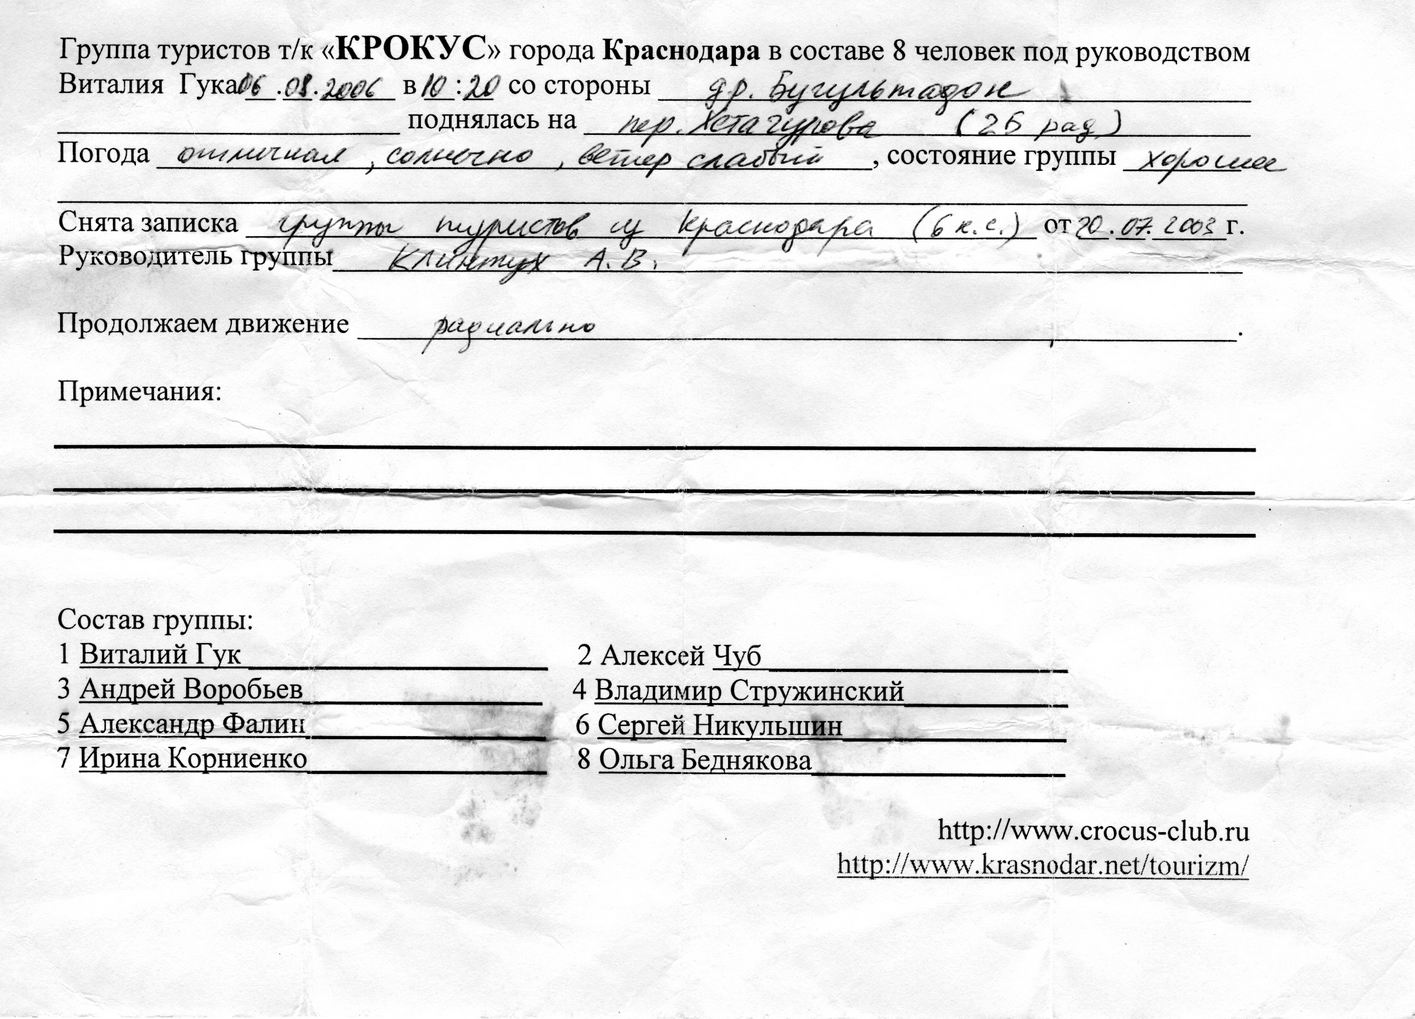 Группа туристов т/к «КРОКУС» города Краснодара в составе 8 человек под руководством
Виталия Гука 06.08.2006 в 10:20 со стороны др. Бугультадон
поднялась на пер. Хетагурова (2Б рад)
Погода отличная, солнечно, ветер слабый, состояние группы хорошее
Снята записка группы туристов из Краснодара (6 к.с.) от 20.07.2003 г.
Руководитель группы Клинтух А.В.
Продолжаем движение радиально.
Примечания:
Состав группы:
1 Виталий Гук 2 Алексей Чуб
3 Андрей Воробьев 4 Владимир Стружинский
5 Александр Фалин 6 Сергей Никульшин
7 Ирина Корниенко 8 Ольга Беднякова
http://www.crocus-club.ru
http://www.krasnodar.net/tourizm/